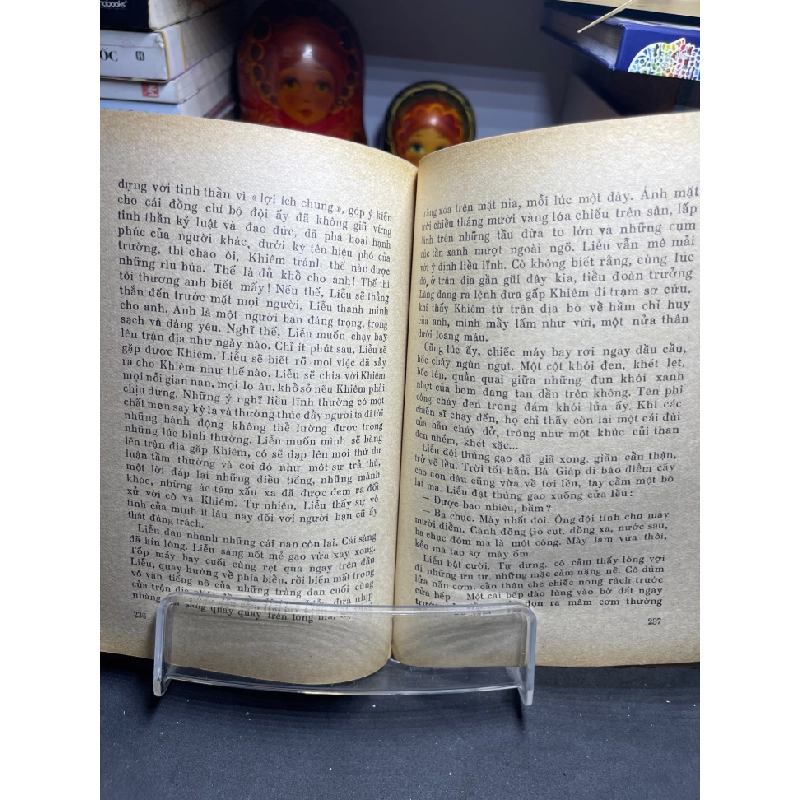 ỐC
dựng với tinh thần vì « lợi ích chung », góp ý kiến
cho cái đồng chí bộ đội ấy đã không giữ vững
tinh thần kỷ luật và đạo đức, đã phá hoại hạnh
phúc của người khác, dưới ký tên hiệu phó của
trường, thì chao ôi, Khiêm tránh thế nào được
những rìu búa. Thế là đủ khổ cho anh! Thế thì
tôi thương anh biết mấy! Nếu thế, Liễu sẽ thẳng
thắn đến trước mặt mọi người, Liễu thanh minh
cho anh. Anh là một người bạn đáng trọng, trong
sạch và đáng yêu. Nghĩ thế, Liễu muốn chạy bay
lên trận địa như ngày nào. Chỉ ít phút sau, Liễu sẽ
gặp được Khiêm. Liễu sẽ biết rõ mọi việc đã xảy
ra cho Khiêm như thế nào, Liễu sẽ chia với Khiêm
mọi nỗi gian nan, mọi lo âu, khổ sở nếu Khiêm phải
chịu đựng. Những ý nghĩ liều lĩnh thường có một
chất men say kỳ lạ và thường thúc đẩy người ta đi tới
những hành động không thể lường được trong
những lúc bình thường. Liễu muốn mình sẽ băng
lên trận địa gặp Khiêm, có sẽ đạp lên mọi thứ dư
luận tầm thường và coi đó như một sự trả thù,
một lời đáp lại những điều tiếng, những mảnh
khóe, những ác tâm xấu xa đã được đem ra đối
xử với cô và Khiêm. Tự nhiên, Liễu thấy sự vô
tình của mình ít lâu nay đối với người bạn cũ ấy
thật đáng trách.
Liễu đan nhanh những cái nan còn lại. Cái sàng
đã kín lòng. Liễu sang nốt mẻ gạo vừa xay xong.
Tốp máy bay cuối cùng rẹt qua ngay trên đầu
Liễu, quay hướng về phía biển, rồi biến mất trong
vô vàn tiếng nổ của những tràng đạn cuối cùng
của trận địa
sàng quay quay trên lòng
236
xóa trên mặt nia, mỗi lúc một dày. Ánh mặt
trời chiều tháng mười vàng lóa chiếu trên sân, lấp
lánh trên những tàu dừa to lớn và những cụm
tóc ẩn sanh mượt ngoài ngõ. Liễu vẫn mê mải
với ý định liều lĩnh. Cô không biết rằng, cùng lúc
đó, ở trận địa gần gũi đây kia, tiểu đoàn trưởng
Lãng đang ra lệnh đưa gấp Khiêm đi trạm sơ cứu,
khi thấy Khiêm từ trận địa bò về hầm chỉ huy
của anh, mình mẩy lấm như vùi, một nửa thân
dưới loang máu.
Cũng lúc ấy, chiếc máy bay rơi ngay đầu cầu,
bốc cháy ngùn ngụt. Một cột khói đen, khét lẹt,
bốc lên, quẩn quại giữa những đụn khói xanh
nhạt của bom đang tan dần trên không. Tên phi
công cháy đen trong đám khói lửa ấy. Khi các
chiến sĩ chạy đến, họ chỉ thấy còn lại một cái đùi
của hắn cháy dở, trông như một khúc củi than
đen nhẻm, khét xác...
Liễu đội thúng gạo đã giã xong, giần cẩn thận,
trở về lều. Trời tối hẳn. Bà Giáp đi báo điểm cấy
cho con dâu cũng vừa về tới lều, tay cầm một bó
lá ma. Liễu đặt thúng gạo xuống cửa lều:
— Được bao nhiêu, bầm?
— Ba chục. Mày nhất đội. Ông đội tính cho mày
mười điểm. Cánh đồng gò cụt, đồng xa, nước sâu,
ba chục đóm mạ là một công. Mày làm vừa thôi,
kẻo mà lao sợ máy ốm.
Liễu bật cười. Tự dưng, cô cảm thấy lòng vợi
đi những ưu tư, những mặc cảm nặng nề. Cô dúm
lửa nấu cơm, cẩn thận che chiếc nong rách trước
cửa bếp.
ra mâm cơm thường
237